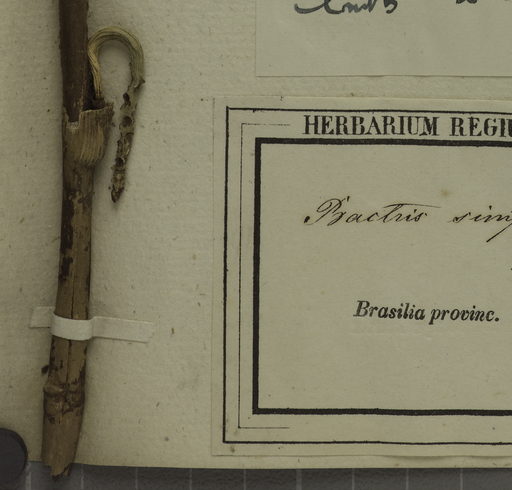 HERBARIUM REGIU
Bactris sim
Brasilia provinc.